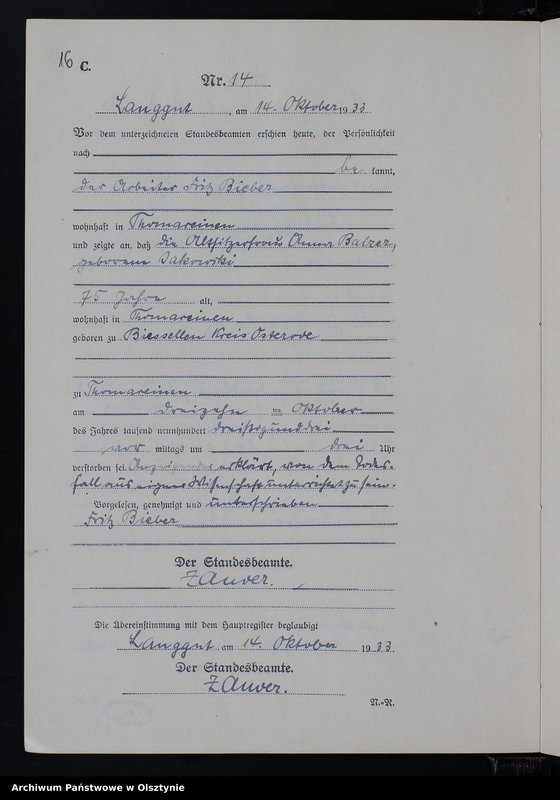 16 C.
Nr. 14
Langgut, am 14. Oktober 1933
Vor dem unterzeichneten Standesbeamten erschien heute, der Persönlichkeit
nach
be kannt,
der Arbeiter Fritz Bieber
wohnhaft in Thomareinen
und zeigte an, daß die Altsitzerfrau Anna Balzer,
geborene Sakowski
75 Jahre alt,
wohnhaft in Thomareinen
geboren zu Biessellen Kreis Osterode
zu Thomareinen
am dreizehn ten Oktober
des Jahres tausend neunhundert dreißigunddrei
vor mittags um drei Uhr
verstorben sei. erklärt, von dem Todes-
fall aus eigener Wissenschaft unterrichtet zu sein.
Vorgelesen, genehmigt und unterschrieben
Fritz Bieber
Der Standesbeamte.
Die Übereinstimmung mit dem Hauptregister beglaubigt
Langgut am 14. Oktober 1933.
Der Standesbeamte.
N.-R.
Archiwum Państwowe w Olsztynie